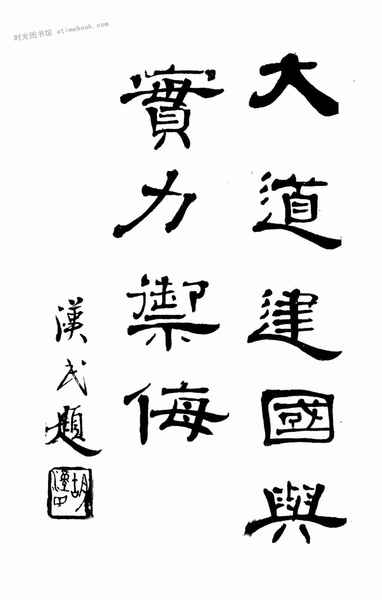 时光图书馆 atimebook.com
大道建國與
實力禦侮
漢民題